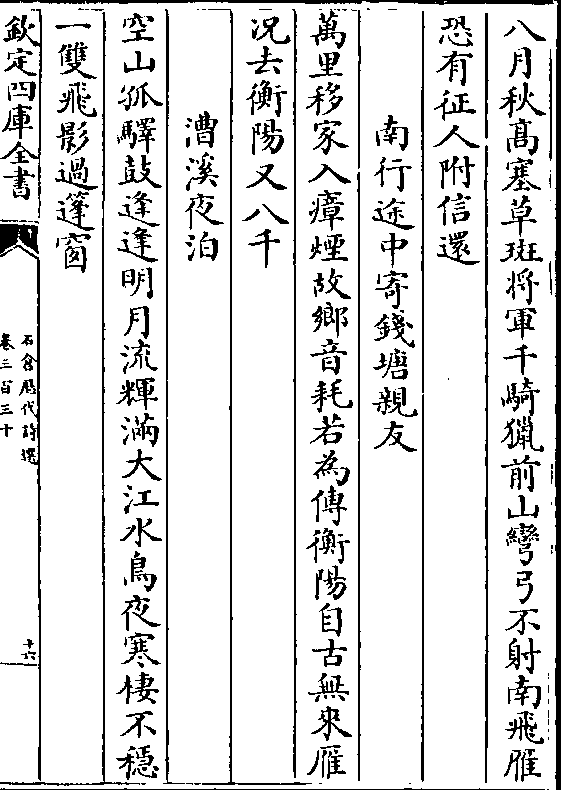 八月秋高塞草斑將軍千騎獵前山彎弓不射南飛雁
恐有征人附信還
南行途中寄錢塘親友
萬里移家入瘴煙故鄉音耗若為傳衡陽自古無來雁
况去衡陽又八千
漕溪夜泊
空山孤驛鼓逢逢明月流輝滿大江水鳥夜寒棲不穩
一雙飛影過篷窗
欽定四庫全書
石倉歷代詩選
卷三百三十
十六